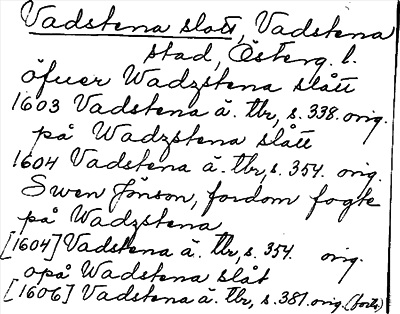 Vadstena slott, Vadstena
stad, Österg. l.
öfuer Wadzstena slått
1603 Vadstena ä. tbr, s. 338. orig.
på Wadzstena slått
1604 Vadstena ä. tbr, s. 354. orig.
Swen Jönson, fordom fogte
på Wadzstena
[1604] Vadstena ä. tbr, s. 354. orig.
opå Wadstena slåt
[1606] Vadstena ä. tbr, s. 381. orig. (forts.)